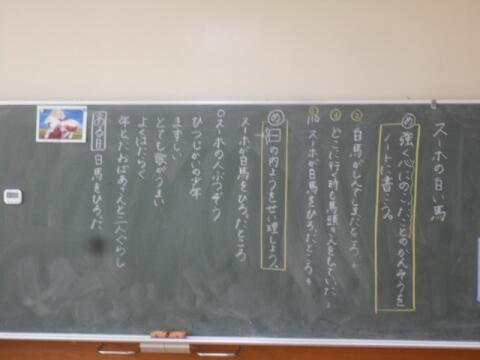 スーホの白い馬
め 強く心にのこったことのかんそうを
ノートに書こう。
② 白馬がしんでしまったところ。
④ どこに行く時も馬頭きんをもっていた。
① スーホが白馬をひろったところ。
め の内ようをせい理しよう。
スーホが白馬をひろったところ
○スーホの人ぶつぞう
ひつじかいの少年
まずしい
とても歌がうまい
よくはたらく
年とったおばあさんと二人ぐらし
ある日 白馬をひろった。